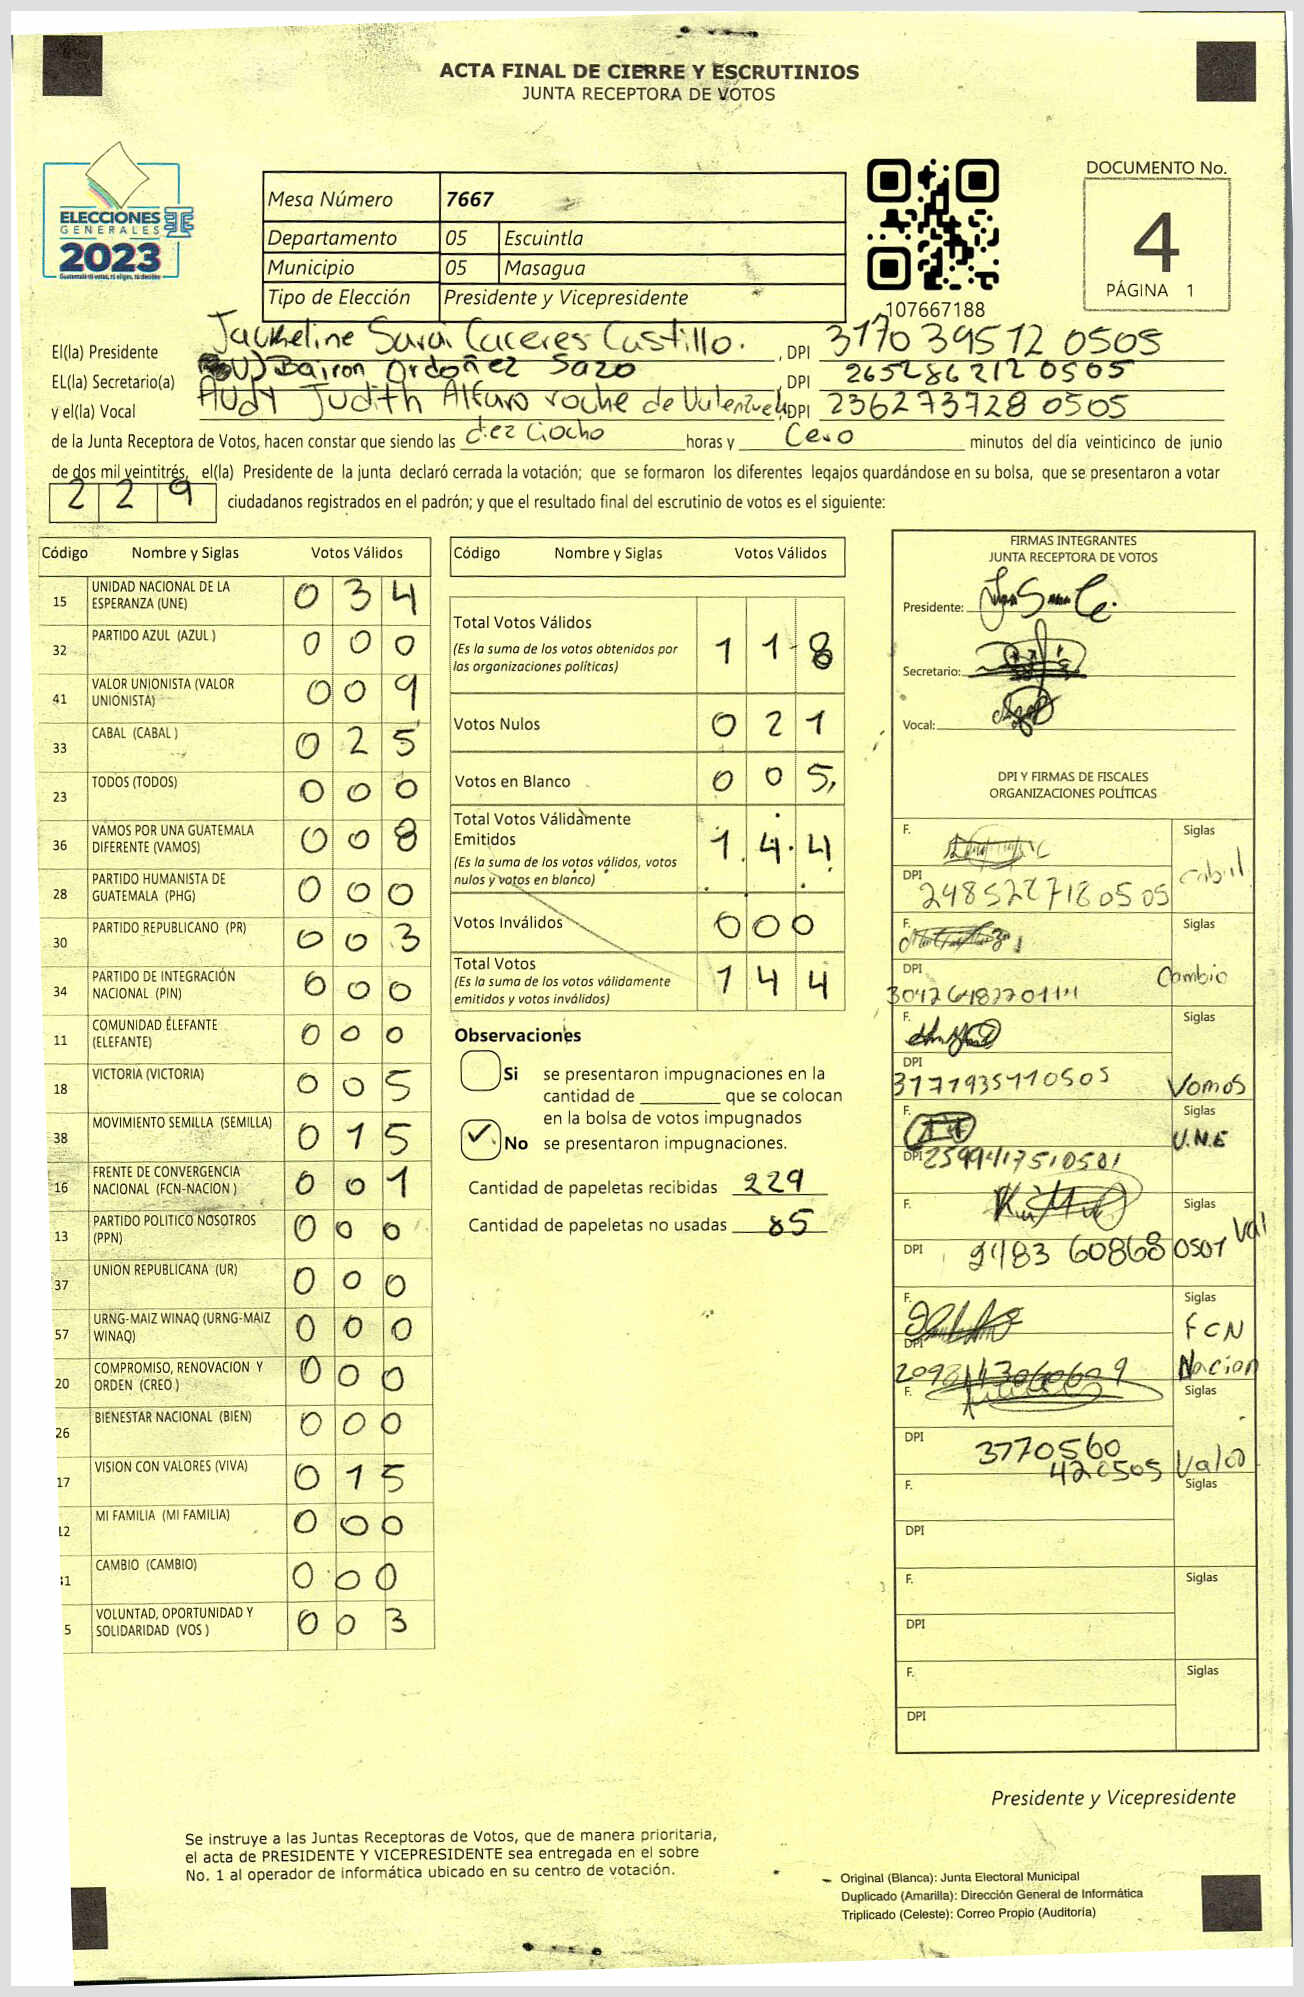 ACTA FINAL DE CIERRE Y ESCRUTINIOS
JUNTA RECEPTORA DE VOTOS
ELECCIONES
GENERALES
2023
Mesa Número 7667
Departamento 05 Escuintla
Municipio 05 Masagua
Tipo de Elección Presidente y Vicepresidente
107667188
DOCUMENTO No.
4
PÁGINA 1
El(la) Presidente Jackeline Sarai Caceres Castillo. , DPI 3170 39512 0505
EL(la) Secretario(a) Bairon Ordoñez Sazo , DPI 265286212 0505
y el(la) Vocal Audy Judith Alfaro roche de Valenzuela , DPI 236273728 0505
de la Junta Receptora de Votos, hacen constar que siendo las diez ciocho horas y Cero minutos del día veinticinco de junio
de dos mil veintitrés, el(la) Presidente de la junta declaró cerrada la votación; que se formaron los diferentes legajos guardándose en su bolsa, que se presentaron a votar
229 ciudadanos registrados en el padrón; y que el resultado final del escrutinio de votos es el siguiente:
Código Nombre y Siglas Votos Válidos
15 UNIDAD NACIONAL DE LA ESPERANZA (UNE) 0 3 4
32 PARTIDO AZUL (AZUL ) 0 0 0
41 VALOR UNIONISTA (VALOR UNIONISTA) 0 0 9
33 CABAL (CABAL ) 0 2 5
23 TODOS (TODOS) 0 0 0
36 VAMOS POR UNA GUATEMALA DIFERENTE (VAMOS) 0 0 8
28 PARTIDO HUMANISTA DE GUATEMALA (PHG) 0 0 0
30 PARTIDO REPUBLICANO (PR) 0 0 3
34 PARTIDO DE INTEGRACIÓN NACIONAL (PIN) 0 0 0
11 COMUNIDAD ELEFANTE (ELEFANTE) 0 0 0
18 VICTORIA (VICTORIA) 0 0 5
38 MOVIMIENTO SEMILLA (SEMILLA) 0 1 5
16 FRENTE DE CONVERGENCIA NACIONAL (FCN-NACION ) 0 0 1
13 PARTIDO POLITICO NOSOTROS (PPN) 0 0 0
37 UNION REPUBLICANA (UR) 0 0 0
57 URNG-MAIZ WINAQ (URNG-MAIZ WINAQ) 0 0 0
20 COMPROMISO, RENOVACION Y ORDEN (CREO ) 0 0 0
26 BIENESTAR NACIONAL (BIEN) 0 0 0
17 VISION CON VALORES (VIVA) 0 1 5
12 MI FAMILIA (MI FAMILIA) 0 0 0
31 CAMBIO (CAMBIO) 0 0 0
5 VOLUNTAD, OPORTUNIDAD Y SOLIDARIDAD (VOS ) 0 0 3
Código Nombre y Siglas Votos Válidos
Total Votos Válidos 1 1 8
(Es la suma de los votos obtenidos por
las organizaciones políticas)
Votos Nulos 0 2 1
Votos en Blanco 0 0 5
Total Votos Válidamente
Emitidos 1 4 4
(Es la suma de los votos válidos, votos
nulos y votos en blanco)
Votos Inválidos 0 0 0
Total Votos 1 4 4
(Es la suma de los votos válidamente
emitidos y votos inválidos)
Observaciones
Si se presentaron impugnaciones en la
cantidad de ________ que se colocan
en la bolsa de votos impugnados
No se presentaron impugnaciones.
Cantidad de papeletas recibidas 229
Cantidad de papeletas no usadas 85
FIRMAS INTEGRANTES
JUNTA RECEPTORA DE VOTOS
Presidente:
Secretario:
Vocal:
DPI Y FIRMAS DE FISCALES
ORGANIZACIONES POLÍTICAS
F. Siglas
DPI 2485227180505 Cabal
F. Siglas
DPI Cambio
F. Siglas
DPI 3171935110505 Vamos
F. Siglas
DPI 2599417510501 U.N.E
F. Siglas
DPI 2483 60868 0501 Val
F. Siglas
DPI FCN Nacion
F. Siglas
DPI 3770560 420505 Valor
F. Siglas
DPI
F. Siglas
DPI
F. Siglas
DPI
Presidente y Vicepresidente
Se instruye a las Juntas Receptoras de Votos, que de manera prioritaria,
el acta de PRESIDENTE Y VICEPRESIDENTE sea entregada en el sobre
No. 1 al operador de informática ubicado en su centro de votación.
Original (Blanca): Junta Electoral Municipal
Duplicado (Amarilla): Dirección General de Informática
Triplicado (Celeste): Correo Propio (Auditoría)